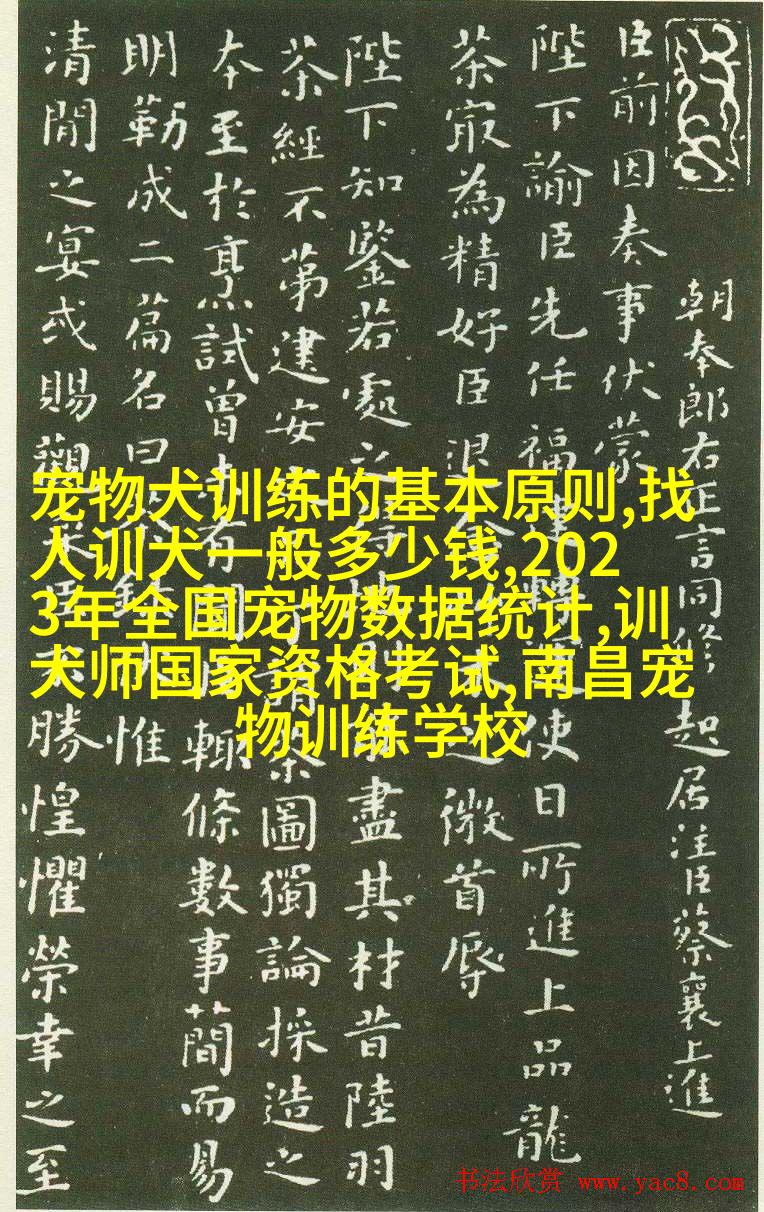 朝奉郎右正言同修起居注臣蔡襄上進
臣前因奏事伏蒙
陛下諭臣先任福建轉使日所進上品龍
茶㝡為精好臣退之微首辱
陛下知鑒若處之盡其材昔陸羽
茶經不第建安茶圖獨論採造之
本至於烹試曾未有聞輒條數事簡而易
明勒成二篇名曰惟
清閒之宴或賜觀臣不勝惶懼榮幸之至
宠物犬训练的基本原则,找
人训犬一般多少钱,202
3年全国宠物数据统计,训
犬师国家资格考试,南昌宠
物训练学校
书法欣赏 www.yac8.com